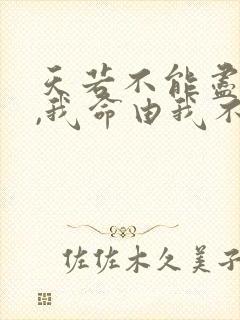 天若不能尽
,我命由我不
佐佐木久美子